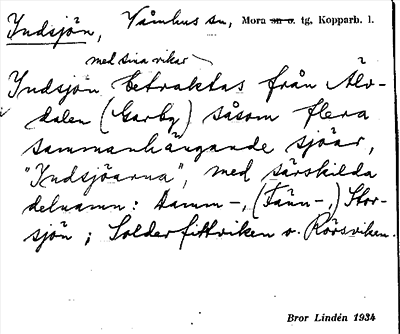 Indsjön, Våmhus sn, Mora sn o. tg. Kopparb. l.
med sina vikar
Indsjön betraktas från Älv-
dalen (Garby) såsom flera
sammanhängande sjöar,
"Indsjöarna", med särskilda
delnamn: Damm-, (Fänn-,) Stor-
sjön; Solderfittviken o. Rörsviken.
Bror Lindén 1934